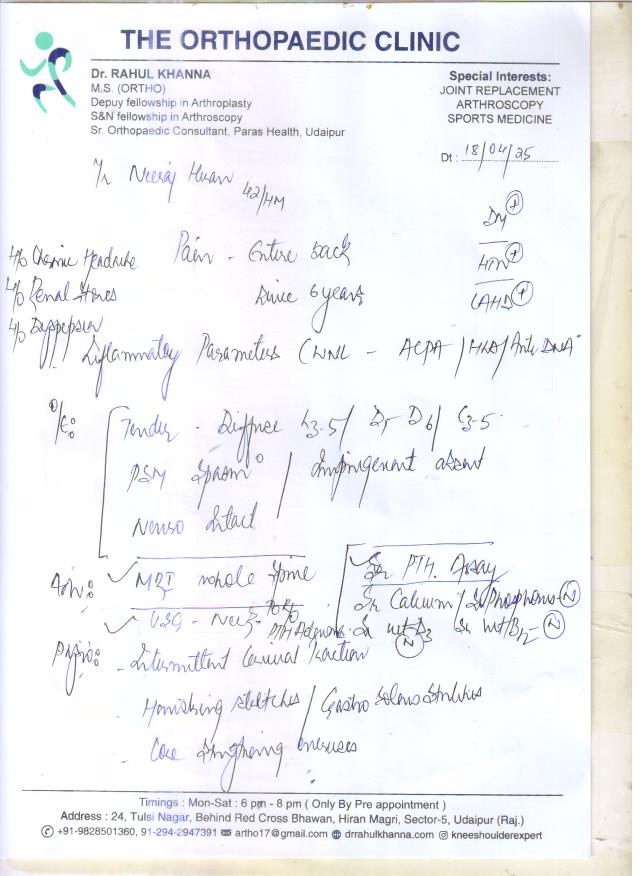 THE ORTHOPAEDIC CLINIC
Dr. RAHUL KHANNA
M.S. (ORTHO)
Depuy fellowship in Arthroplasty
S&N fellowship in Arthroscopy
Sr. Orthopaedic Consultant, Paras Health, Udaipur
Special Interests:
JOINT REPLACEMENT
ARTHROSCOPY
SPORTS MEDICINE
Dt : 18/04/25
Neeraj
42/M
DM +
HTN +
+
H/o Chronic Headache
H/o Renal Stones
H/o Dyspepsia
Pain - Entire back
Since 6 years
Inflammatory Parameters (WNL - ACPA / HLA / Anti DNA
O/E:
Tender - Diffuse L3-5 / D5 D6 / C3-5
PSM Spasm / Impingement absent
Neuro Intact
Adv: ✓ MRI whole Spine
✓ USG - Neck
PTH Adenoma
✓ Sr PTH. Assay
Sr Calcium / Sr Phosphorus - N
Sr Vit D3 N Sr Vit B12 - N
Physio: - Intermittent Cervical Traction
- Hamstring stretches / Gastro Soleus
- Core Strengthening exercises
Timings : Mon-Sat : 6 pm - 8 pm ( Only By Pre appointment )
Address : 24, Tulsi Nagar, Behind Red Cross Bhawan, Hiran Magri, Sector-5, Udaipur (Raj.)
+91-9828501360, 91-294-2947391 artho17@gmail.com drrahulkhanna.com kneeshoulderexpert